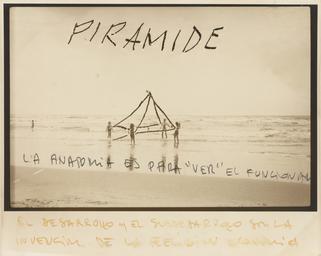 PIRAMIDE
LA ANATOMIA ES PARA "VER" EL FUNCIONAM
EL DESARROLLO Y EL SUBDESARROLLO SON LA
INVENCION DE LA RELIGION ECONOMIA